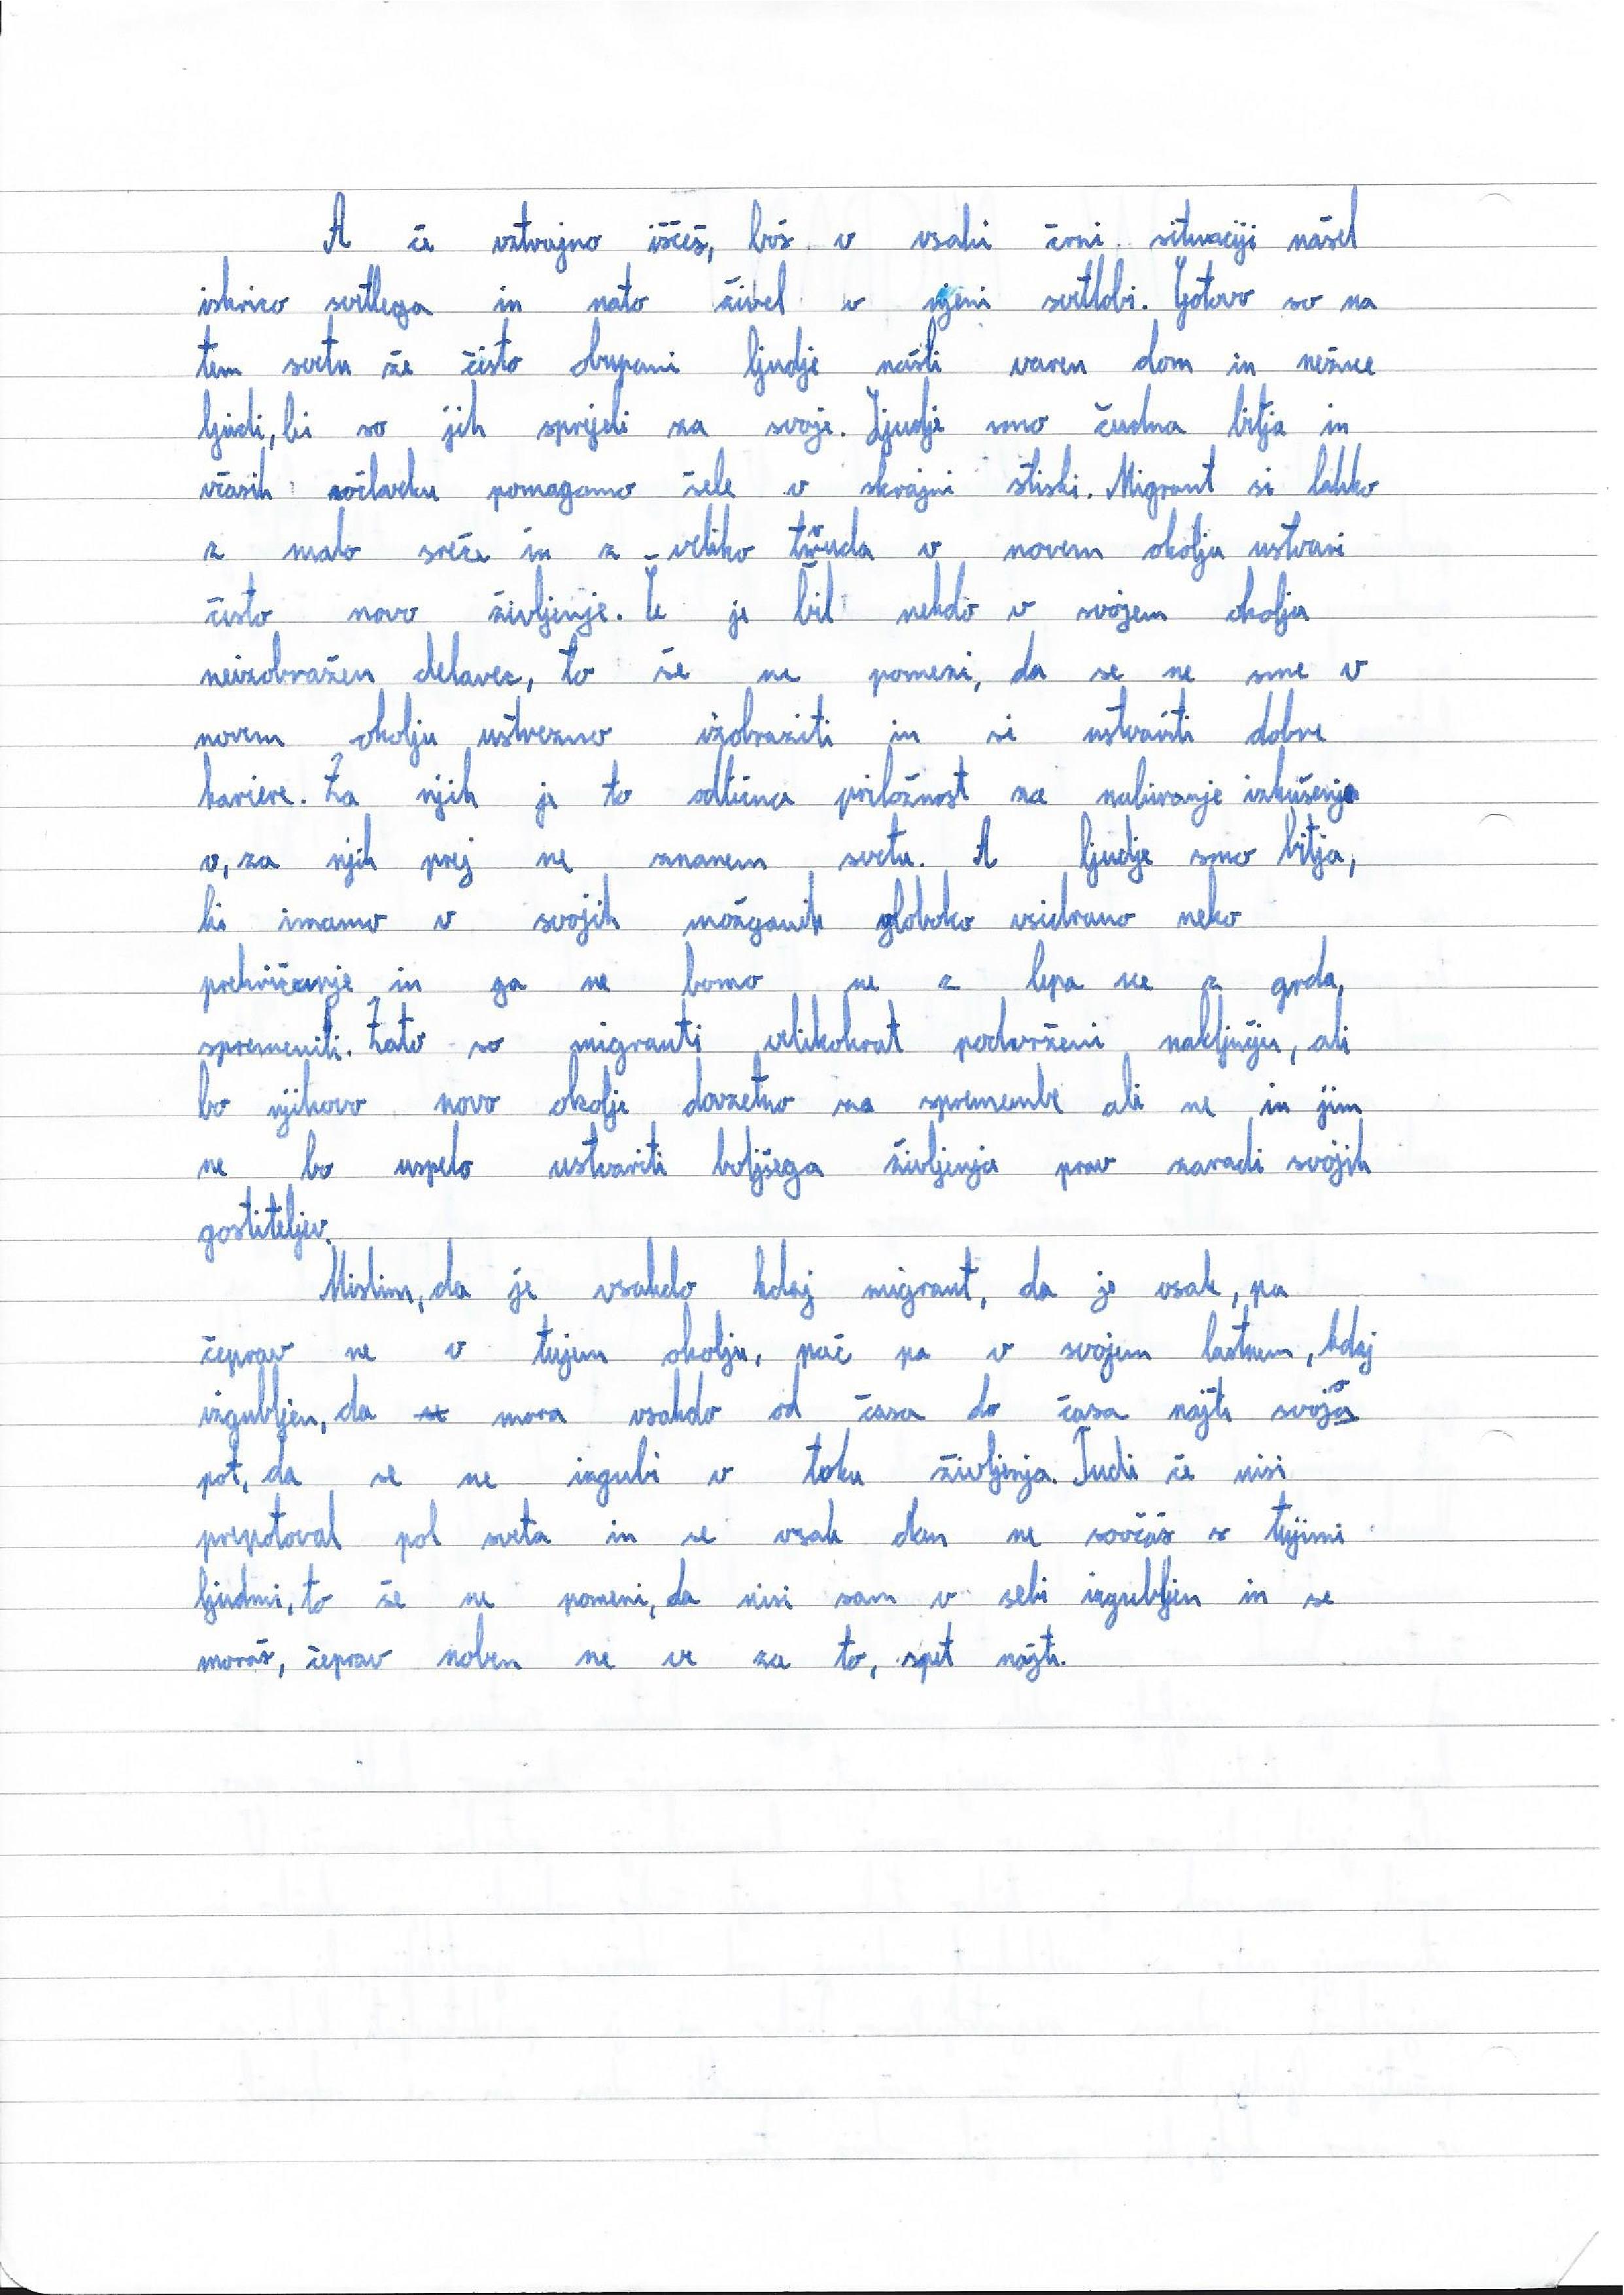 A če vztrajno iščeš, boš v vsaki črni situaciji našel
iskrico svetlega in nato živel v njeni svetlobi. Gotovo so na
tem svetu že čisto obupani ljudje našli varen dom in nežne
ljudi, ki so jih sprejeli za svoje. Ljudje smo čudna bitja in
včasih sočloveku pomagamo šele v skrajni stiski. Migrant si lahko
z malo sreče in z veliko truda v novem okolju ustvari
čisto novo življenje. Če je bil nekdo v svojem okolju
neizobražen delavec, to še ne pomeni, da se ne sme v
novem okolju ustrezno izobraziti in si ustvariti dobre
kariere. Za njih je to odlična priložnost za nabiranje izkušenj
v, za njih prej ne znanem svetu. A ljudje smo bitja,
ki imamo v svojih možganih globoko vsidrano neko
prekričanje in ga ne bomo ne z lepa ne z grda,
spremenili. Zato so migranti velikokrat podvrženi naključju, ali
bo njihovo novo okolje dovzetno za spremembe ali ne in jim
ne bo uspelo ustvariti boljšega življenja prav zaradi svojih
gostiteljev.
Mislim, da je vsakdo kdaj migrant, da je vsak, pa
čeprav ne v tujem okolju, pač pa v svojem lastnem, kdaj
izgubljen, da mora vsakdo od časa do časa najti svojo
pot, da se ne izgubi v toku življenja. Tudi če nisi
prepotoval pol sveta in se vsak dan ne soočaš s tujimi
ljudmi, to še ne pomeni, da nisi sam v sebi izgubljen in se
moraš, čeprav noben ne ve za to, spet najti.